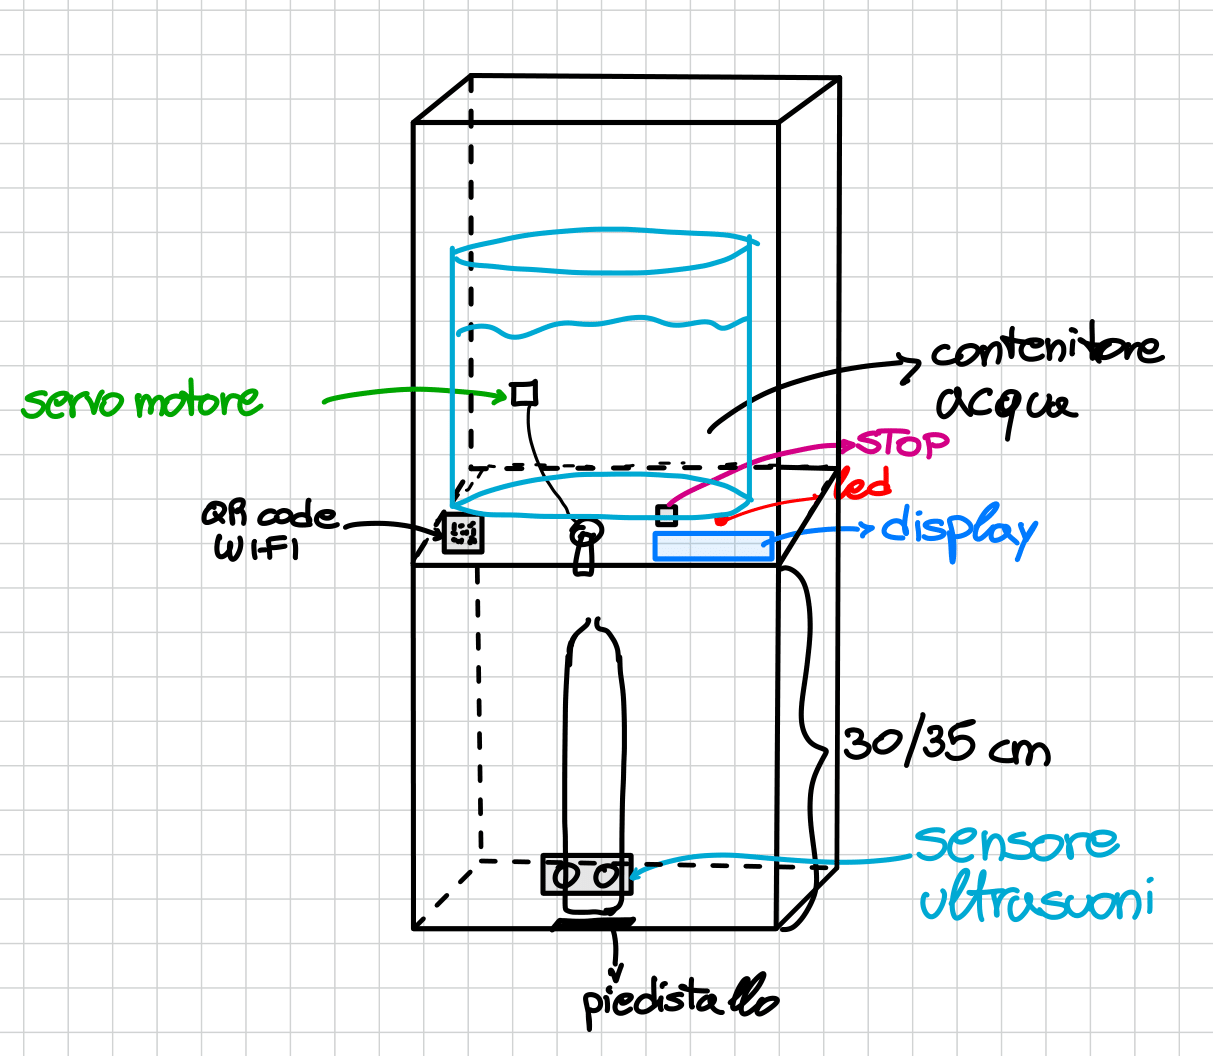 contenitore
acqua
servo motore
STOP
led
QR code
WIFI
display
30/35 cm
sensore
ultrasuoni
piedistallo